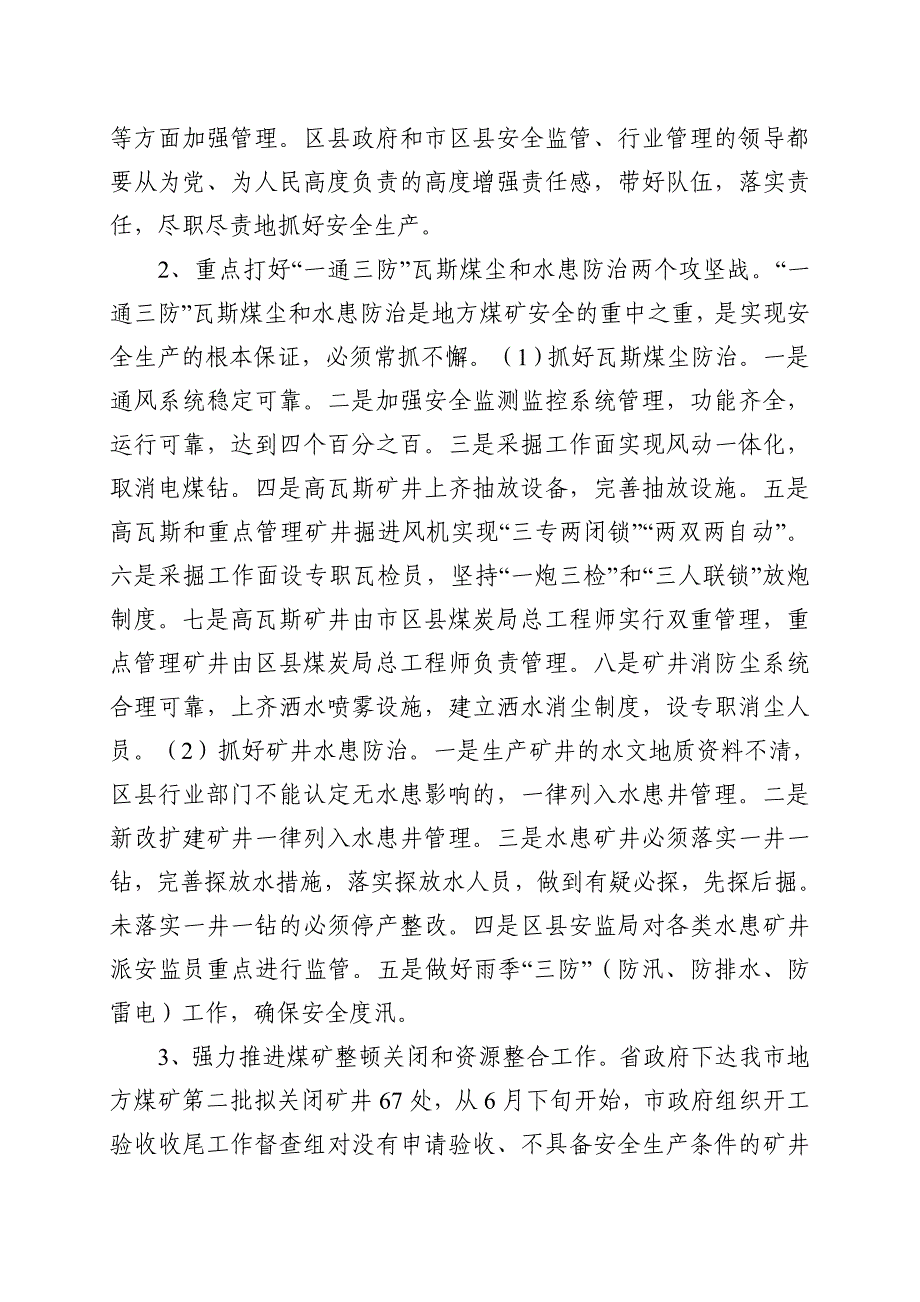 等方面加强管理。区县政府和市区县安全监管、行业管理的领导都
要从为党、为人民高度负责的高度增强责任感，带好队伍，落实责
任，尽职尽责地抓好安全生产。
2、重点打好“一通三防”瓦斯煤尘和水患防治两个攻坚战。“一
通三防”瓦斯煤尘和水患防治是地方煤矿安全的重中之重，是实现安
全生产的根本保证，必须常抓不懈。（1）抓好瓦斯煤尘防治。一是
通风系统稳定可靠。二是加强安全监测监控系统管理，功能齐全，
运行可靠，达到四个百分之百。三是采掘工作面实现风动一体化，
取消电煤钻。四是高瓦斯矿井上齐抽放设备，完善抽放设施。五是
高瓦斯和重点管理矿井掘进风机实现“三专两闭锁”“两双两自动”。
六是采掘工作面设专职瓦检员，坚持“一炮三检”和“三人联锁”放炮
制度。七是高瓦斯矿井由市区县煤炭局总工程师实行双重管理，重
点管理矿井由区县煤炭局总工程师负责管理。八是矿井消防尘系统
合理可靠，上齐洒水喷雾设施，建立洒水消尘制度，设专职消尘人
员。（2）抓好矿井水患防治。一是生产矿井的水文地质资料不清，
区县行业部门不能认定无水患影响的，一律列入水患井管理。二是
新改扩建矿井一律列入水患井管理。三是水患矿井必须落实一井一
钻，完善探放水措施，落实探放水人员，做到有疑必探，先探后掘。
未落实一井一钻的必须停产整改。四是区县安监局对各类水患矿井
派安监员重点进行监管。五是做好雨季“三防”（防汛、防排水、防
雷电）工作，确保安全度汛。
3、强力推进煤矿整顿关闭和资源整合工作。省政府下达我市地
方煤矿第二批拟关闭矿井 67 处，从 6 月下旬开始，市政府组织开工
验收收尾工作督查组对没有申请验收、不具备安全生产条件的矿井